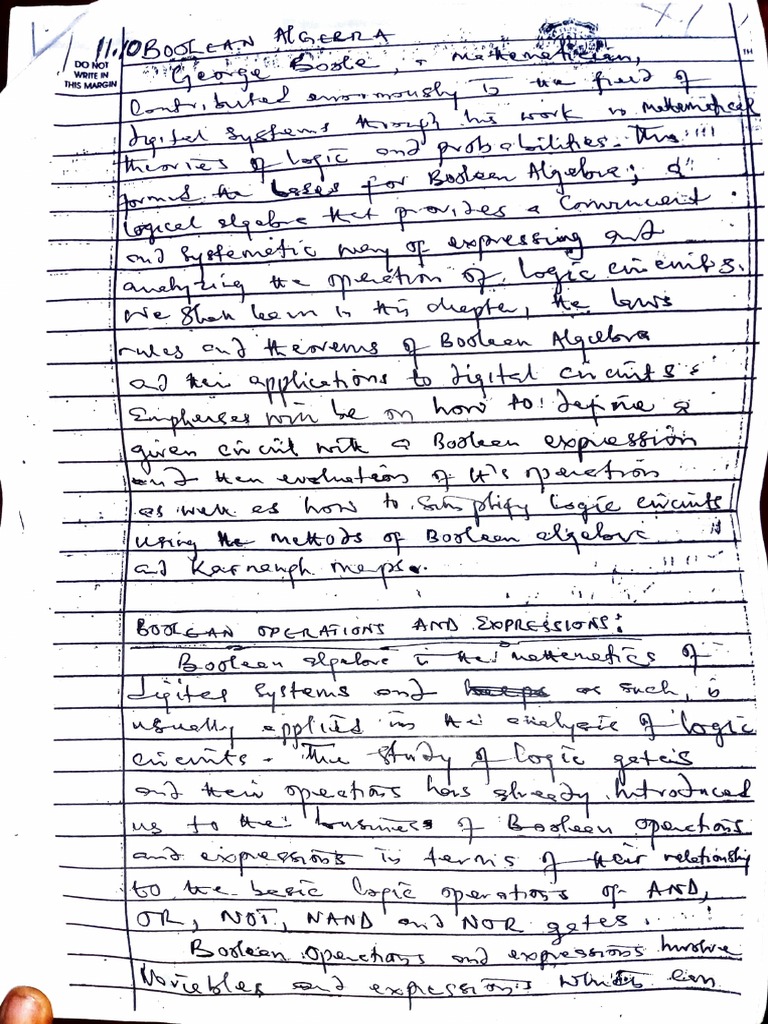 11.10 BOOLEAN ALGEBRA
DO NOT
WRITE IN
THIS MARGIN
George Boole, a mathematician,
Contributed enormously to the field of
digital systems through his work in mathematical
theories of logic and probabilities. This
formed the bases for Boolean Algebra; a
logical algebra that provides a Convenient
and systematic way of expressing and
analyzing the operation of logic circuits.
We shall learn in this chapter, the laws
rules and theorems of Boolean Algebra
and their applications to digital circuits.
Emphases will be on how to define a
given circuit with a Boolean expression
and then evaluation of it's operation
as well as how to simplify logic circuits
using the methods of Boolean algebra
and Karnaugh maps.
BOOLEAN OPERATIONS AND EXPRESSIONS:
Boolean algebra is the mathematics of
digital systems and as such, is
usually applied in the analysis of logic
circuits. The study of logic gates
and their operations has already introduced
us to the business of Boolean operations
and expressions in terms of their relationship
to the basic logic operations of AND,
OR, NOT, NAND and NOR gates.
Boolean Operations and expressions involve
Variables and expressions which can